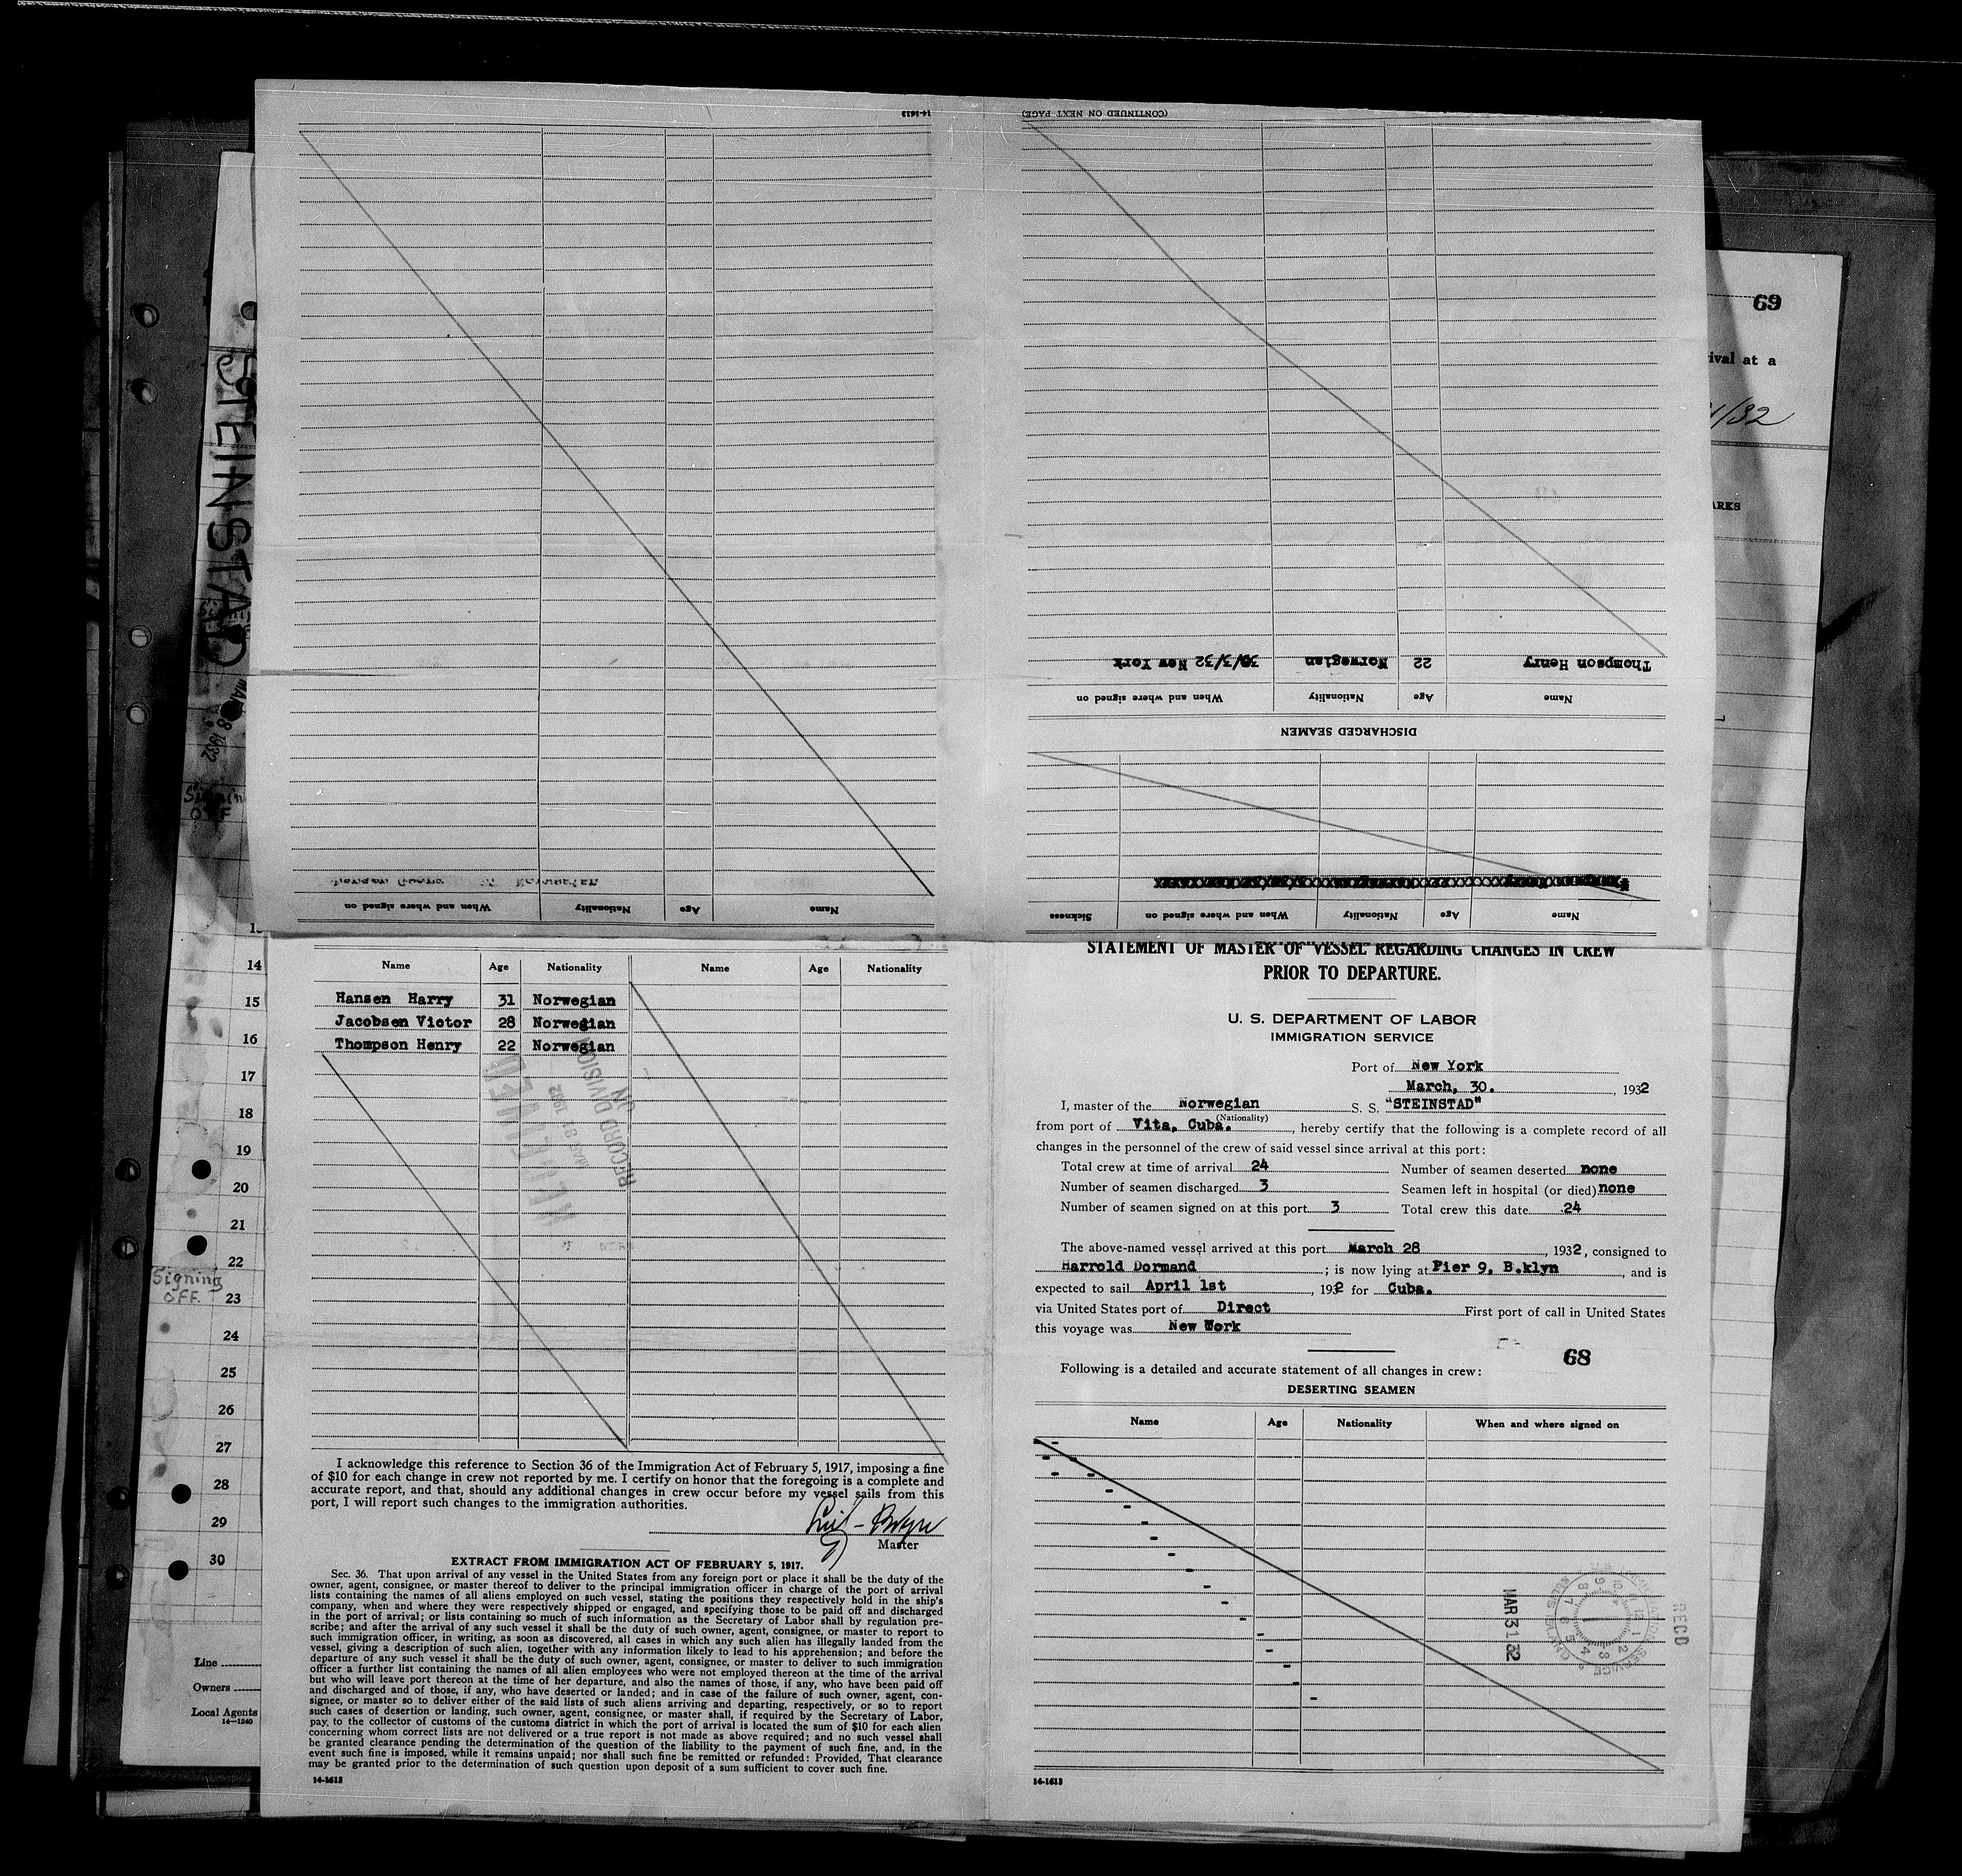 14-1613
(CONTINUED ON NEXT PAGE)
Thompson Henry 22 Norwegian 30/3/32 New York
Name Age Nationality When and where signed on
DISCHARGED SEAMEN
Name Age Nationality When and where signed on
Name Age Nationality When and where signed on Sickness
69
ival at a
1/32
ARKS
STEINSTAD
8 1932
OFF
14
15
16
17
18
19
20
21
22
Signing
OFF.
23
24
25
26
27
28
29
30
Line
Owners
Local Agents
14-1240
Name Age Nationality Name Age Nationality
Hansen Harry 31 Norwegian
Jacobsen Victor 28 Norwegian
Thompson Henry 22 Norwegian
RECEIVED
MAR 31 1932
RECORD DIVISION
I acknowledge this reference to Section 36 of the Immigration Act of February 5, 1917, imposing a fine
of $10 for each change in crew not reported by me. I certify on honor that the foregoing is a complete and
accurate report, and that, should any additional changes in crew occur before my vessel sails from this
port, I will report such changes to the immigration authorities.
Master
EXTRACT FROM IMMIGRATION ACT OF FEBRUARY 5, 1917.
Sec. 36. That upon arrival of any vessel in the United States from any foreign port or place it shall be the duty of the
owner, agent, consignee, or master thereof to deliver to the principal immigration officer in charge of the port of arrival
lists containing the names of all aliens employed on such vessel, stating the positions they respectively hold in the ship's
company, when and where they were respectively shipped or engaged, and specifying those to be paid off and discharged
in the port of arrival; or lists containing so much of such information as the Secretary of Labor shall by regulation pre-
scribe; and after the arrival of any such vessel it shall be the duty of such owner, agent, consignee, or master to report to
such immigration officer, in writing, as soon as discovered, all cases in which any such alien has illegally landed from the
vessel, giving a description of such alien, together with any information likely to lead to his apprehension; and before the
departure of any such vessel it shall be the duty of such owner, agent, consignee, or master to deliver to such immigration
officer a further list containing the names of all alien employees who were not employed thereon at the time of the arrival
but who will leave port thereon at the time of her departure, and also the names of those, if any, who have been paid off
and discharged and of those, if any, who have deserted or landed; and in case of the failure of such owner, agent, con-
signee, or master so to deliver either of the said lists of such aliens arriving and departing, respectively, or so to report
such cases of desertion or landing, such owner, agent, consignee, or master shall, if required by the Secretary of Labor,
pay to the collector of customs of the customs district in which the port of arrival is located the sum of $10 for each alien
concerning whom correct lists are not delivered or a true report is not made as above required; and no such vessel shall
be granted clearance pending the determination of the question of the liability to the payment of such fine, and, in the
event such fine is imposed, while it remains unpaid; nor shall such fine be remitted or refunded: Provided, That clearance
may be granted prior to the determination of such question upon deposit of a sum sufficient to cover such fine.
14-1613
STATEMENT OF MASTER OF VESSEL REGARDING CHANGES IN CREW
PRIOR TO DEPARTURE.
U. S. DEPARTMENT OF LABOR
IMMIGRATION SERVICE
Port of New York
March, 30. , 1932
I, master of the Norwegian S. S. "STEINSTAD"
(Nationality)
from port of Vita, Cuba. , hereby certify that the following is a complete record of all
changes in the personnel of the crew of said vessel since arrival at this port:
Total crew at time of arrival 24 Number of seamen deserted none
Number of seamen discharged 3 Seamen left in hospital (or died) none
Number of seamen signed on at this port 3 Total crew this date 24
The above-named vessel arrived at this port March 28 , 1932, consigned to
Harrold Dormand ; is now lying at Pier 9, B.klyn , and is
expected to sail April 1st , 1932 for Cuba.
via United States port of Direct First port of call in United States
this voyage was New Work
68
Following is a detailed and accurate statement of all changes in crew:
DESERTING SEAMEN
Name Age Nationality When and where signed on
MAR 31 32
REC'D
14-1613